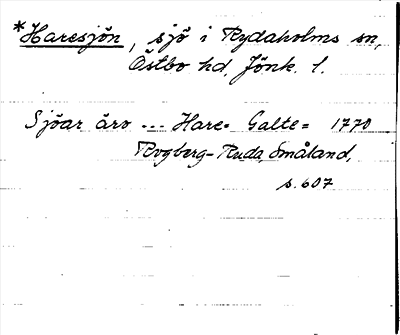 *Haresjön, sjö i Rydaholms sn,
Östbo hd, Jönk. l.
Sjöar äro ... Hare- Galte= 1770
Rogberg-Ruda, Småland,
s. 607